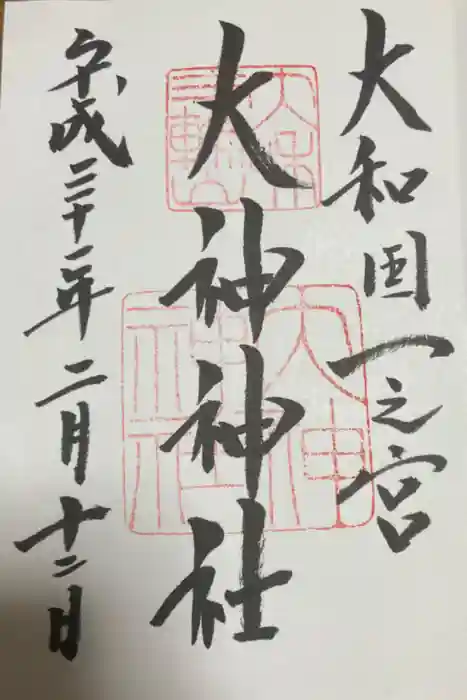 大和国一之宮
大神神社
平成三十一年二月十二日
大神
神社